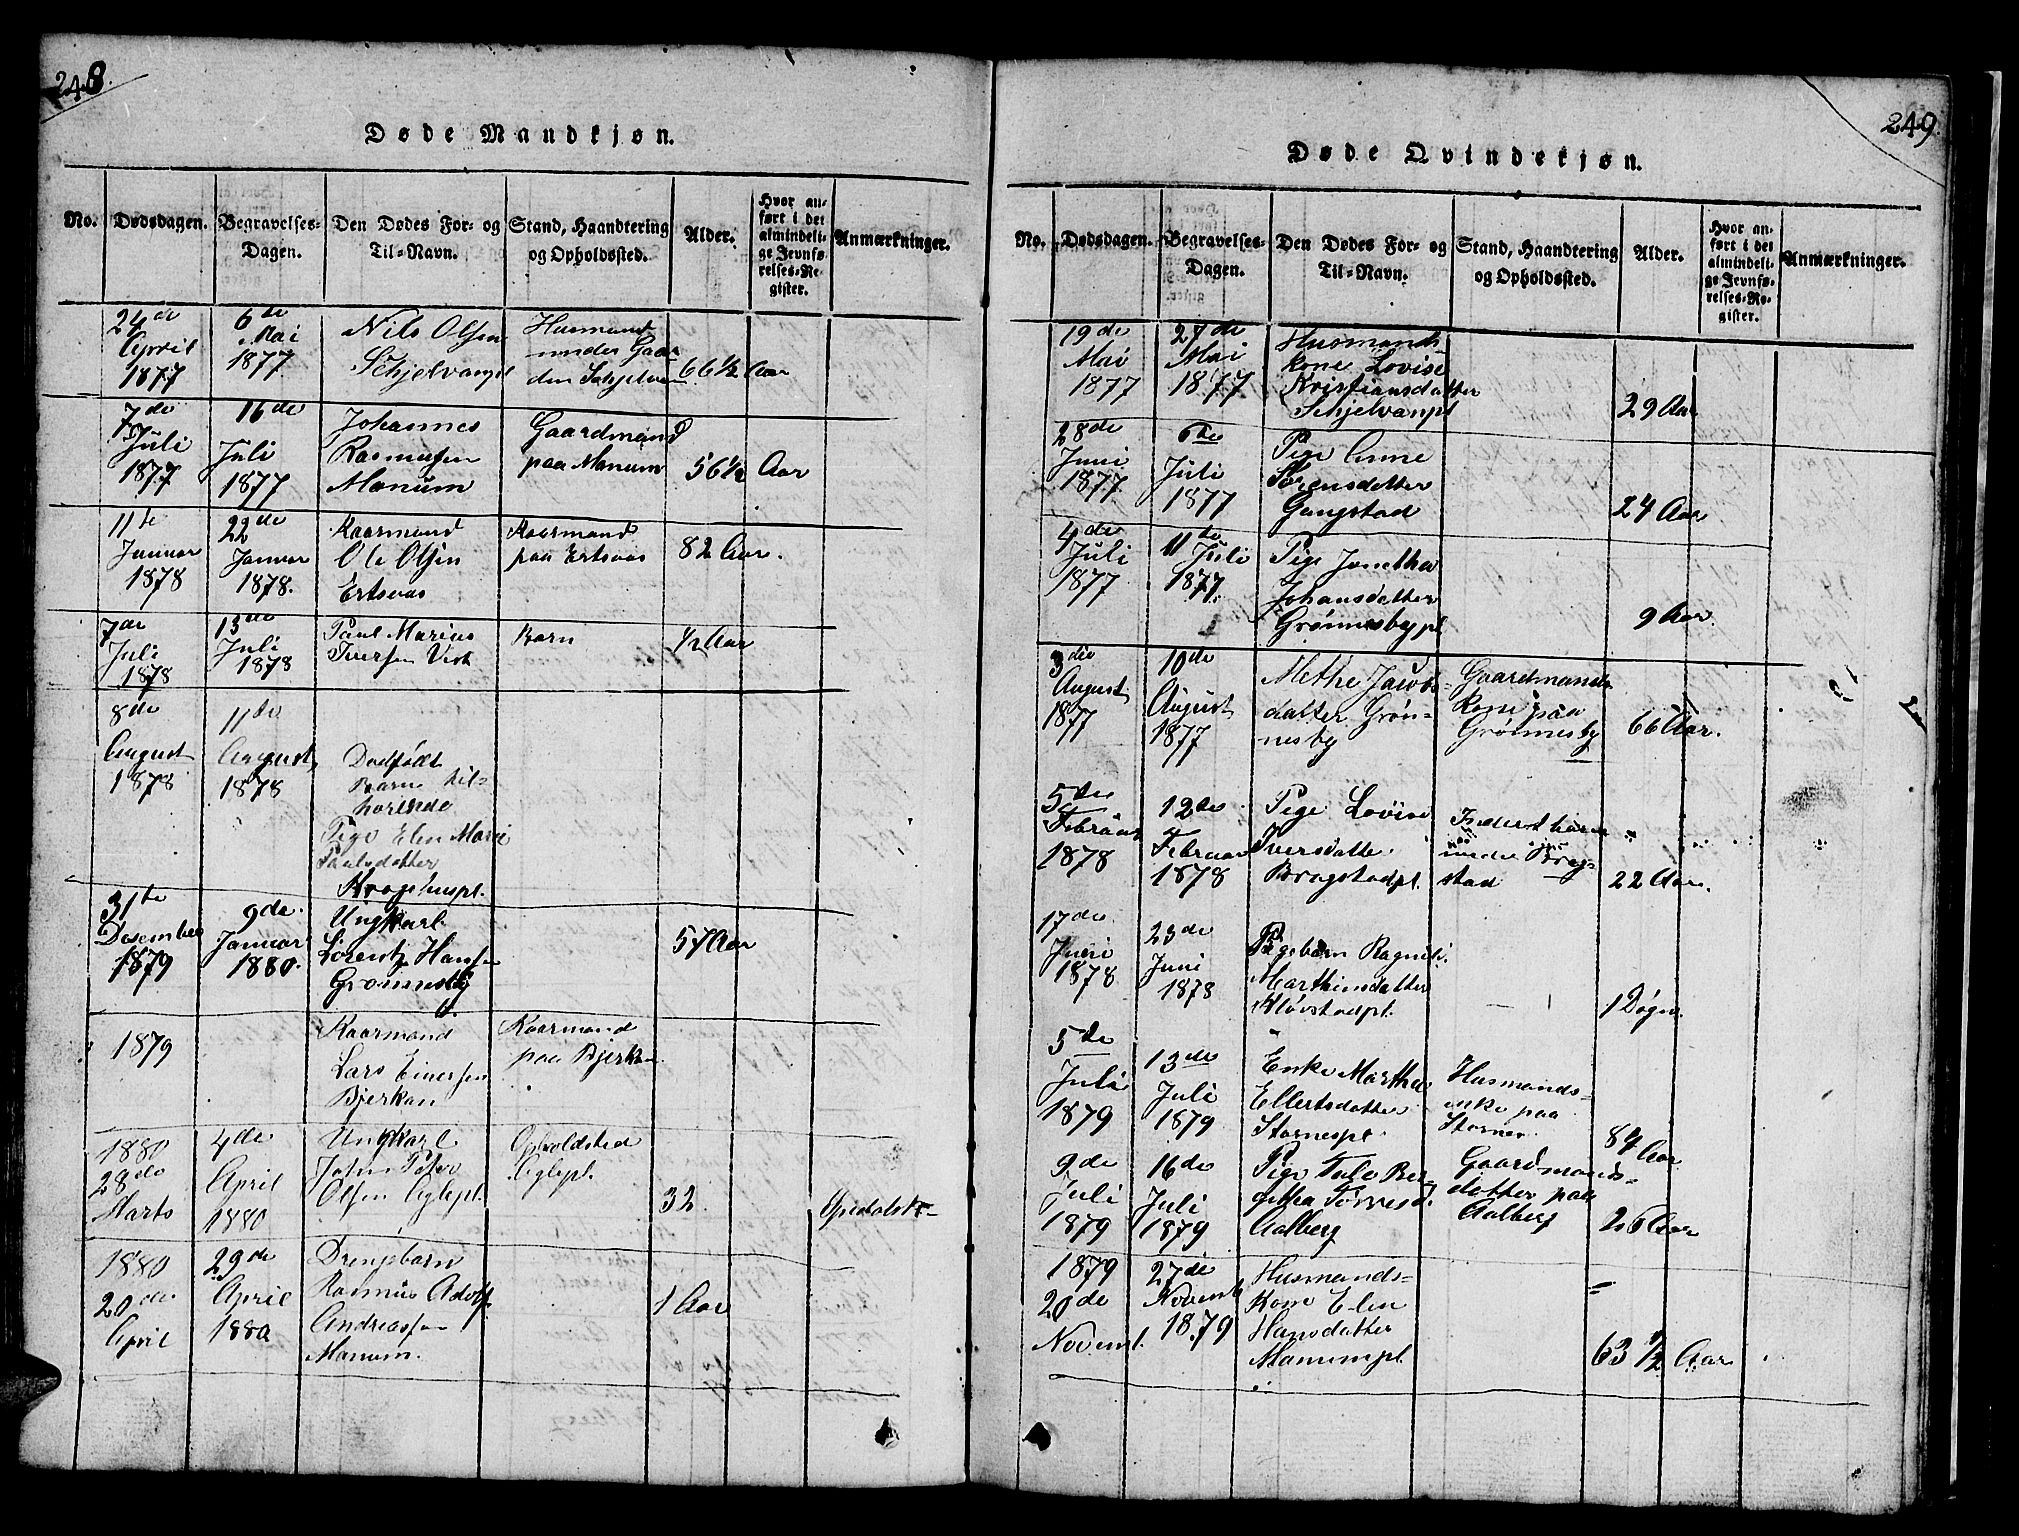 248.
Døde Mandkjøn.
No. Dødsdagen. Begravelses-Dagen. Den Dødes For- og Til-Navn. Stand, Haandtering og Opholdssted. Alder. Hvor anført i det almindelige Jevnførelses-Register. Anmærkninger.
24de 6te Nils Olsen Husmand
April Mai Schjelvanpl under Gaar
1877 1877 den Schjelvan 66½ Aar
7de 16de Johannes Gaardmand
Juli Juli Rasmusen paa Manum 56½ Aar
1877 1877 Manum
11te 22de Kaarmand Kaarmand
Januar Januar Ole Olsen paa Ertsvas 82 Aar.
1878 1878. Ertsvas
7de 13de Paul Marius Barn ½ Aar
Juli Juli Iversen Vist
1878 1878
8de 11te
August August Dødfødt
1878 1878 Barn til-
hørende
Pige Elen Marie
Paulsdatter
31te 9de Ungkarl
Desember Januar Lorentz Hansen 57 Aar
1879 1880. Grønnesby
1879 Kaarmand Kaarmand
Lars Einersen paa Bjerkan
Bjerkan
1880 4de Ungkarl Opholdsted
28de April John Peter Oglepl.
Marts 1880 Olsen Oglepl. 32
1880 29de Drengebarn
20de April Rasmus Adolf 1 Aar
April 1880 Andreassen
Manum.
249.
Døde Qvindekjøn.
No. Dødsdagen. Begravelses-Dagen. Den Dødes For- og Til-Navn. Stand, Haandtering og Opholdssted. Alder. Hvor anført i det almindelige Jevnførelses-Register. Anmærkninger.
19de 27de Husmands
Mai Mai kone Lovise
1877 1877 Kristiansdatter
Schjelvanpl 29 Aar
28de 6te Pige Anne
Juni Juli Sørensdatter
1877 1877 Gangstad 24 Aar
4de 11te Pige Janetha
Juli Juli Johansdatter
1877 1877 Grønnesbypl 9 Aar.
3die 10de Methe Jacobs- Gaardmands
August August datter Grøn- Kone paa
1877 1877 nesby Grønnesby 66 Aar.
5te 12te Pige Lovise
Februar Februar Iversdatter
1878 1878 Bragstadpl. stad 22 Aar.
17de 23de Pigebarn Ragnil
Juni Juni Marthinsdatter
1878 1878 Kløvstadpl. 1 Døgn
5te 13de Enke Martha Husmands-
Juli Juli Ellertsdatter enke paa
1879 1879 Stornespl. Stornes 84 Aar
9de 16de Pige Gaardmands-
Juli Juli datter paa
1879 1879 Aalberg Aalberg 26 Aar
1879 27de Husmands-
20de Novemb Kone Elen
Novemb. 1879 Hansdatter
Manumpl. 63 ½ Aar